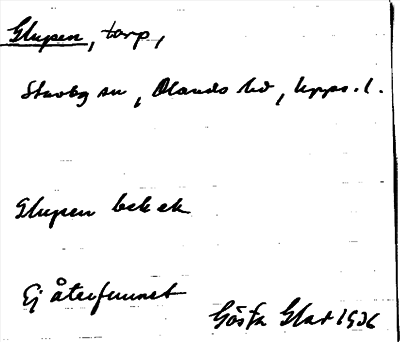 Glupen, torp,
Stavby sn, Olands hd, Upps. l.
Glupen bek ek
Ej återfunnet
Gösta Glas 1936